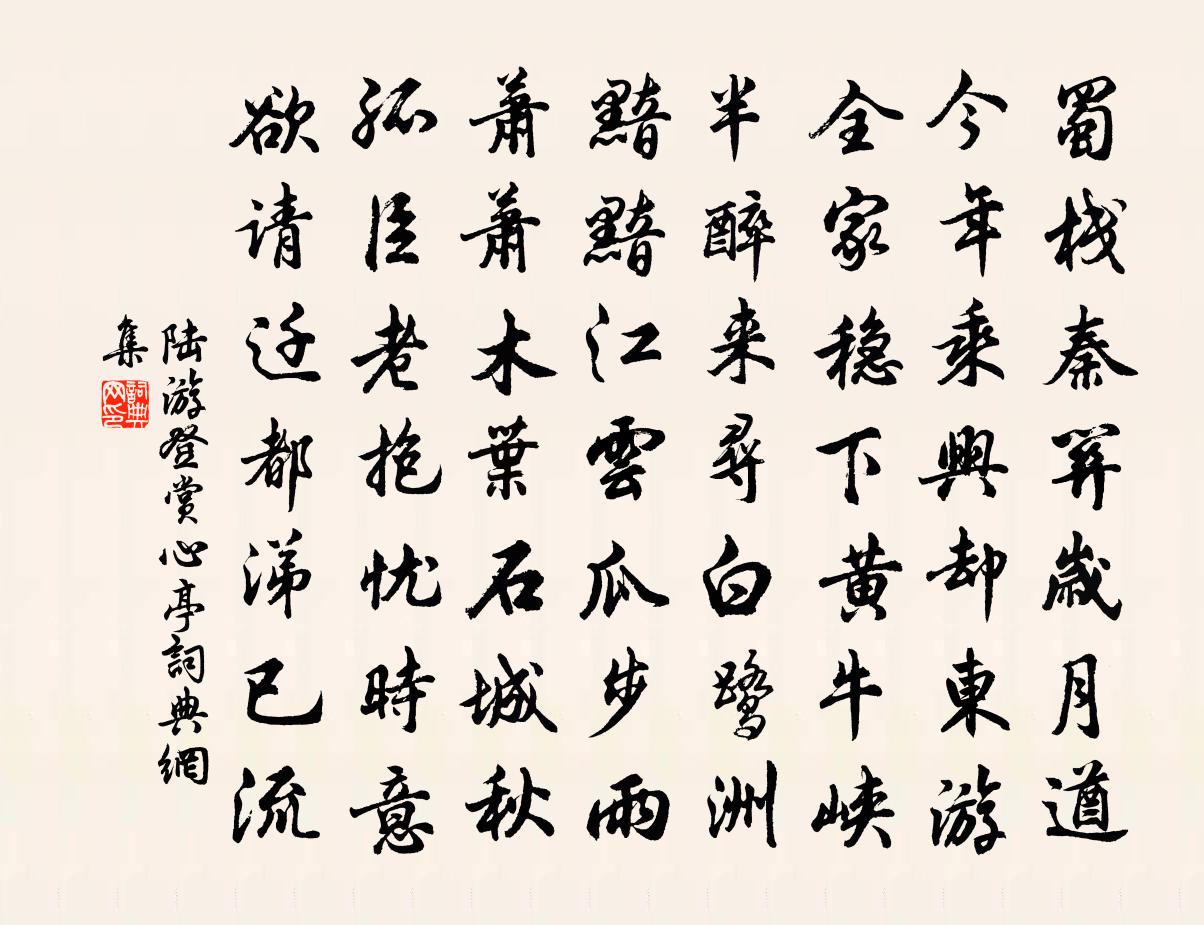 蜀栈秦関歲月遒
今年乘興却東游
全家稳下黄牛峡
半醉来尋白鹭洲
黯黯江雲瓜步雨
蕭蕭木葉石城秋
孤臣老抱忧時意
欲请迁都涕已流
陆游登赏心亭詞典網
集
詞典网印